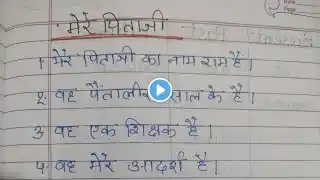 मेरे पिताजी
1. मेरे पिताजी का नाम राम है।
2. वह पैंतालीस साल के है।
3 वह एक शिक्षक है।
4. वह मेरे आदर्श है।
Date
Page